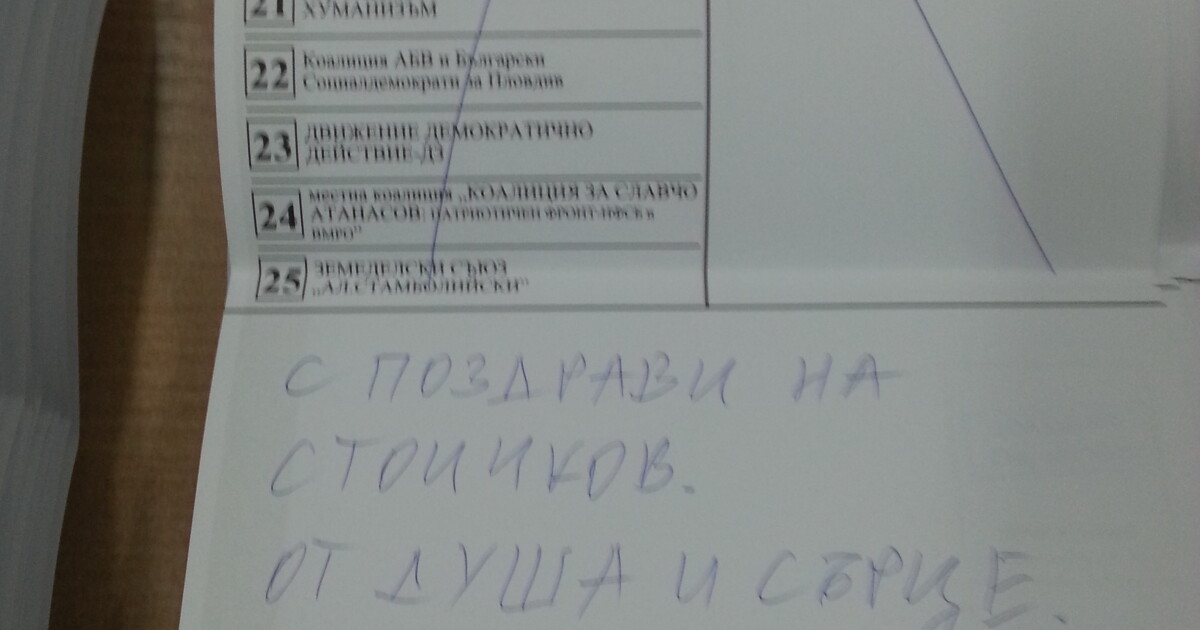 21 ХУМАНИЗЪМ
22 Коалиция АБВ и Български
Социалдемократи за Пловдив
23 ДВИЖЕНИЕ ДЕМОКРАТИЧНО
ДЕЙСТВИЕ-Д3
24 местна коалиция „КОАЛИЦИЯ ЗА СЛАВЧО
АТАНАСОВ: ПАТРИОТИЧЕН ФРОНТ-НФСБ и
ВМРО"
25 ЗЕМЕДЕЛСКИ СЪЮЗ
„АЛ.СТАМБОЛИЙСКИ"
С ПОЗДРАВИ НА
СТОИЧКОВ.
ОТ ДУША И СЪРЦЕ.